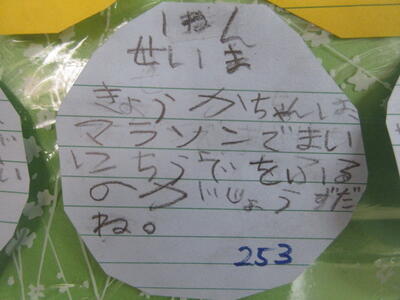 せいま
きょうかちゃんは
マラソンでまい
にちうでをふる
のがじょうずだ
ね。
253